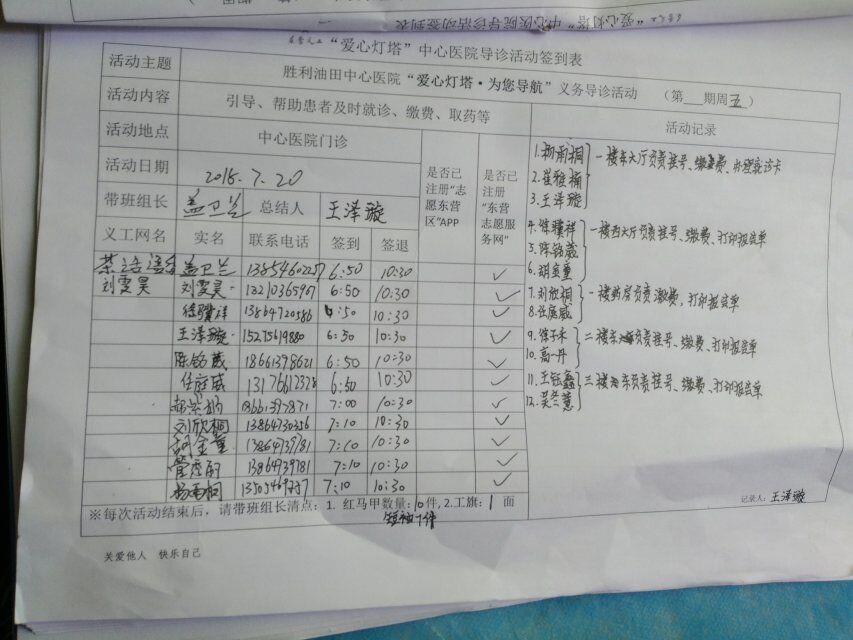 “爱心灯塔”中心医院导诊活动签到表
活动主题 胜利油田中心医院“爱心灯塔·为您导航”义务导诊活动 （第 期周五）
活动内容 引导、帮助患者及时就诊、缴费、取药等
活动地点 中心医院门诊
活动日期 2018.7.20
带班组长 盖卫兰 总结人 王泽璇
是否已注册“志愿东营区”APP
是否已注册“东营志愿服务网”
义工网名 实名 联系电话 签到 签退
盖卫兰 13854602257 6:50 10:30 ✓
刘雯昊 刘雯昊 6:50 10:30 ✓
徐骥祥 13864720586 6:50 10:30 ✓
王泽璇 15275619880 6:50 10:30 ✓
陈铭葳 18661398621 6:50 10:30 ✓
任庭威 13176612378 6:50 10:30 ✓
7:00 10:30 ✓
刘欣桐 13864730356 7:10 10:30 ✓
胡金童 13864739781 7:10 10:30 ✓
13864739781 7:10 10:30 ✓
7:10 10:30 ✓
※每次活动结束后，请带班组长清点：1. 红马甲数量：10件，2.工旗：1 面
短袖7件
活动记录
1.杨雨桐
2.崔雅楠
3.王泽璇
一楼东大厅负责挂号、缴费、办理就诊卡
4.徐骥祥
5.陈铭葳
6.胡金童
一楼西大厅负责挂号、缴费、打印报告单
7.刘欣桐
8.任庭威
一楼药房负责缴费，打印报告单
9.徐子禾
10.高一丹
二楼东负责挂号、缴费、打印报告单
11.王钰鑫
12.吴兰慧
三楼东负责挂号、缴费、打印报告单
记录人：王泽璇
关爱他人 快乐自己